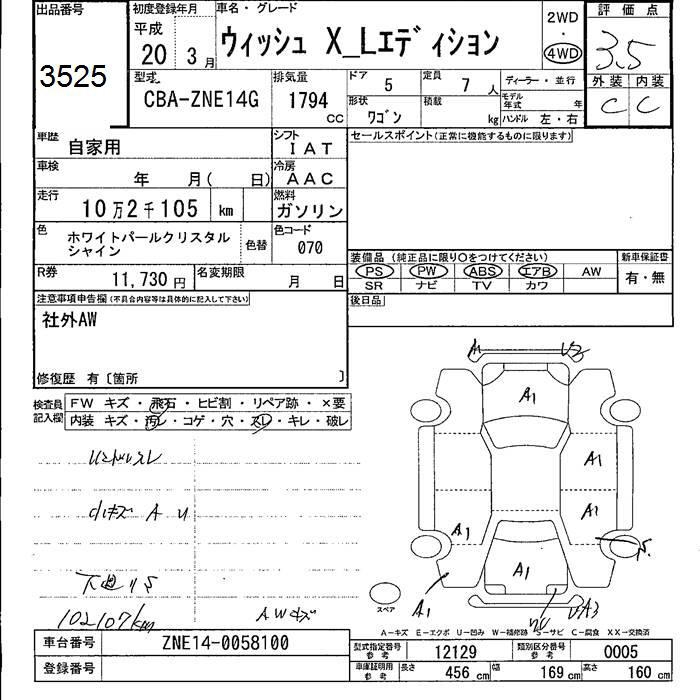 出品番号
3525
初度登録年月
平成
20 3月
車名・グレード
ウィッシュ X_Lエディション
2WD
・
4WD
評価点
3.5
外装 内装
C C
型式
CBA-ZNE14G
排気量
1794
cc
ドア
5
定員
7
人
ディーラー・並行
形状
ワゴン
積載
kg
モデル
年式
年
ハンドル 左・右
車歴
自家用
シフト
IAT
セールスポイント(正常に機能するものに限ります)
車検
年 月( 日)
冷房
AAC
走行
10万2千105 km
燃料
ガソリン
色
ホワイトパールクリスタル
シャイン
色替
色コード
070
装備品 (純正品に限り○をつけてください)
PS PW ABS エアB AW
SR ナビ TV カワ
新車保証書
有・無
R券
11,730円
名変期限
月 日
後日品
注意事項申告欄(不具合内容等は具体的に記入して下さい)
社外AW
修復歴 有〔箇所 〕
検査員
記入欄
FW キズ・飛石・ヒビ割・リペア跡・×要
内装 キズ・汚レ・コゲ・穴・スレ・キレ・破レ
ハンドルスレ
小キズ A U
下廻りS
102107km
AWキズ
A1
A1
A1
A1
A1
A1
S
スペア
A-キズ E-エクボ U-凹み W-補修跡 S-サビ C-腐食 XX-交換済
車台番号
ZNE14-0058100
登録番号
型式指定番号
参考
12129
類別区分番号
参考
0005
車庫証明用
参考
長さ
456 cm
幅
169 cm
高さ
160 cm